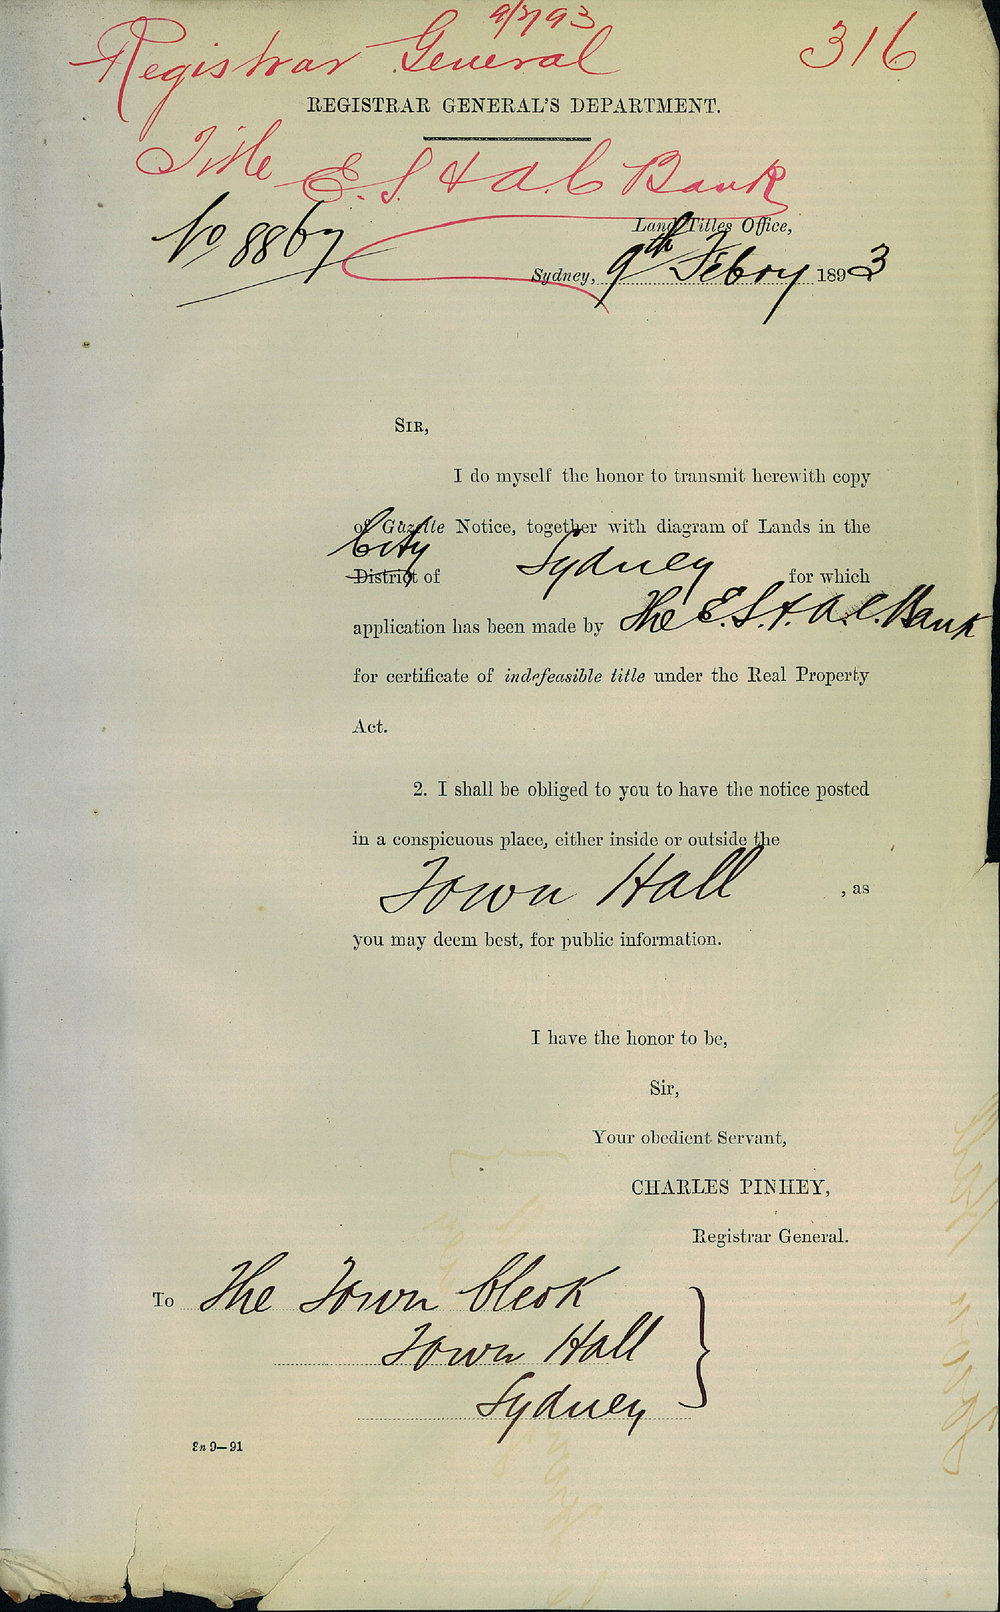 9/2/93
Registrar General 316
REGISTRAR GENERAL'S DEPARTMENT.
Title E. S. & A. C. Bank
No 8867
Land Titles Office,
Sydney, 9th Febry 1893
SIR,
I do myself the honor to transmit herewith copy
of Gazette Notice, together with diagram of Lands in the
City
District of Sydney for which
application has been made by The E. S. & A. C. Bank
for certificate of indefeasible title under the Real Property
Act.
2. I shall be obliged to you to have the notice posted
in a conspicuous place, either inside or outside the
Town Hall , as
you may deem best, for public information.
I have the honor to be,
Sir,
Your obedient Servant,
CHARLES PINHEY,
Registrar General.
To The Town Clerk
Town Hall
Sydney
9–91